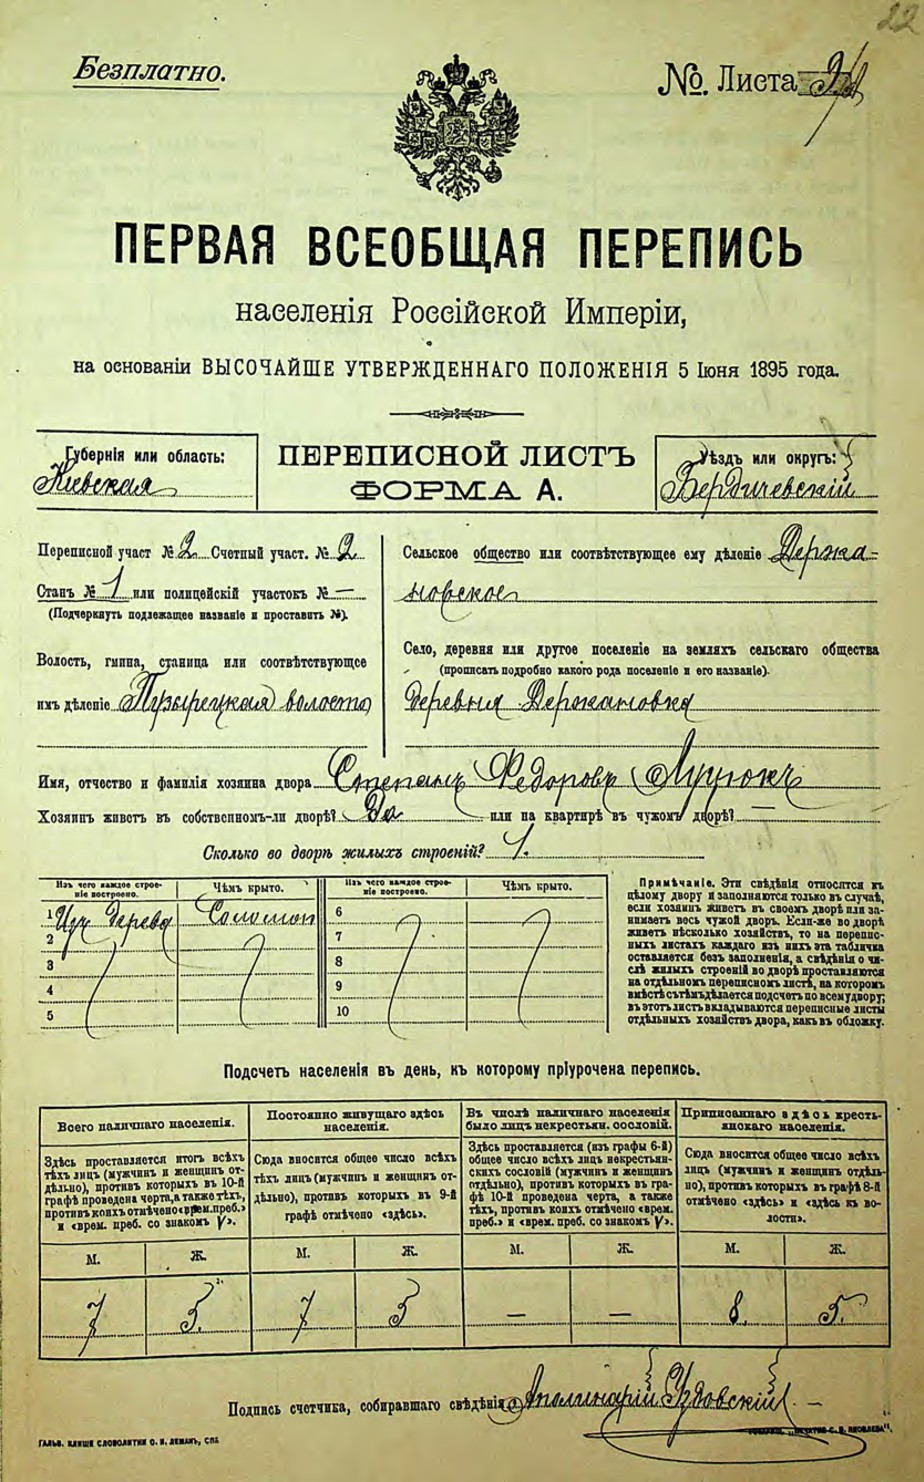 22
Безплатно.
№. Листа
ПЕРВАЯ ВСЕОБЩАЯ ПЕРЕПИСЬ
населенія Россійской Имперіи,
на основаніи ВЫСОЧАЙШЕ УТВЕРЖДЕННАГО ПОЛОЖЕНІЯ 5 Іюня 1895 года.
Губернія или область:
Кіевская
ПЕРЕПИСНОЙ ЛИСТЪ
ФОРМА А.
Уѣздъ или округъ:
Бердичевскій
Переписной участ № 2 Счетный участ. № 2
Станъ № 1 или полицейскій участокъ № —
(Подчеркнуть подлежащее названіе и проставить №).
Волость, гмина, станица или соотвѣтствующее
имъ дѣленіе Пузырецкая волость
Сельское общество или соотвѣтствующее ему дѣленіе Держа-
новское
Село, деревня или другое поселеніе на земляхъ сельскаго общества
(прописать подробно какого рода поселеніе и его названіе).
деревня Держановка
Имя, отчество и фамилія хозяина двора Степанъ Федоровъ Луцюкъ
Хозяинъ живетъ въ собственномъ-ли дворѣ? Да или на квартирѣ въ чужомъ дворѣ? —
Сколько во дворѣ жилыхъ строеній? 1.
Изъ чего каждое строе-
ніе построено.
Чѣмъ крыто.
Изъ чего каждое строе-
ніе построено.
Чѣмъ крыто.
1 Изъ дерева Соломой
2
3
4
5
6
7
8
9
10
Примѣчаніе. Эти свѣдѣнія относятся къ
цѣлому двору и заполняются только въ случаѣ,
если хозяинъ живетъ въ своемъ дворѣ или за-
нимаетъ весь чужой дворъ. Если-же во дворѣ
живетъ нѣсколько хозяйствъ, то на перепис-
ныхъ листахъ каждаго изъ нихъ эта табличка
оставляется безъ заполненія, а свѣдѣнія о чи-
слѣ жилыхъ строеній во дворѣ проставляются
на отдѣльномъ переписномъ листѣ, на которомъ
вмѣстѣ съ тѣмъ дѣлается подсчетъ по всему двору;
въ этотъ листъ вкладываются переписные листы
отдѣльныхъ хозяйствъ двора, какъ въ обложку.
Подсчетъ населенія въ день, къ которому пріурочена перепись.
Всего наличнаго населенія.
Здѣсь проставляется итогъ всѣхъ
тѣхъ лицъ (мужчинъ и женщинъ от-
дѣльно), противъ которыхъ въ 10-й
графѣ проведена черта, а также тѣхъ,
противъ коихъ отмѣчено «врем. преб.»
и «врем. преб. со знакомъ V».
Постоянно живущаго здѣсь
населенія.
Сюда вносится общее число всѣхъ
тѣхъ лицъ (мужчинъ и женщинъ от-
дѣльно), противъ которыхъ въ 9-й
графѣ отмѣчено «здѣсь».
Въ числѣ наличнаго населенія
было лицъ некрестьян. сословій.
Здѣсь проставляется (изъ графы 6-й)
общее число всѣхъ лицъ некрестьян-
скихъ сословій (мужчинъ и женщинъ
отдѣльно), противъ которыхъ въ гра-
фѣ 10-й проведена черта, а также
тѣхъ, противъ коихъ отмѣчено «врем.
преб.» и «врем. преб. со знакомъ V».
Приписаннаго здѣсь кресть-
янскаго населенія.
Сюда вносится общее число всѣхъ
лицъ (мужчинъ и женщинъ отдѣль-
но), противъ которыхъ въ графѣ 8-й
отмѣчено «здѣсь» и «здѣсь къ во-
лости».
М. Ж. М. Ж. М. Ж. М. Ж.
7 5. 7 5 — — 8. 5.
Подпись счетчика, собиравшаго свѣдѣнія Аполинарій
ГАЛЬВ. КЛИШЕ СЛОВОЛИТНИ О. И. ЛЕМАНЪ, СПБ